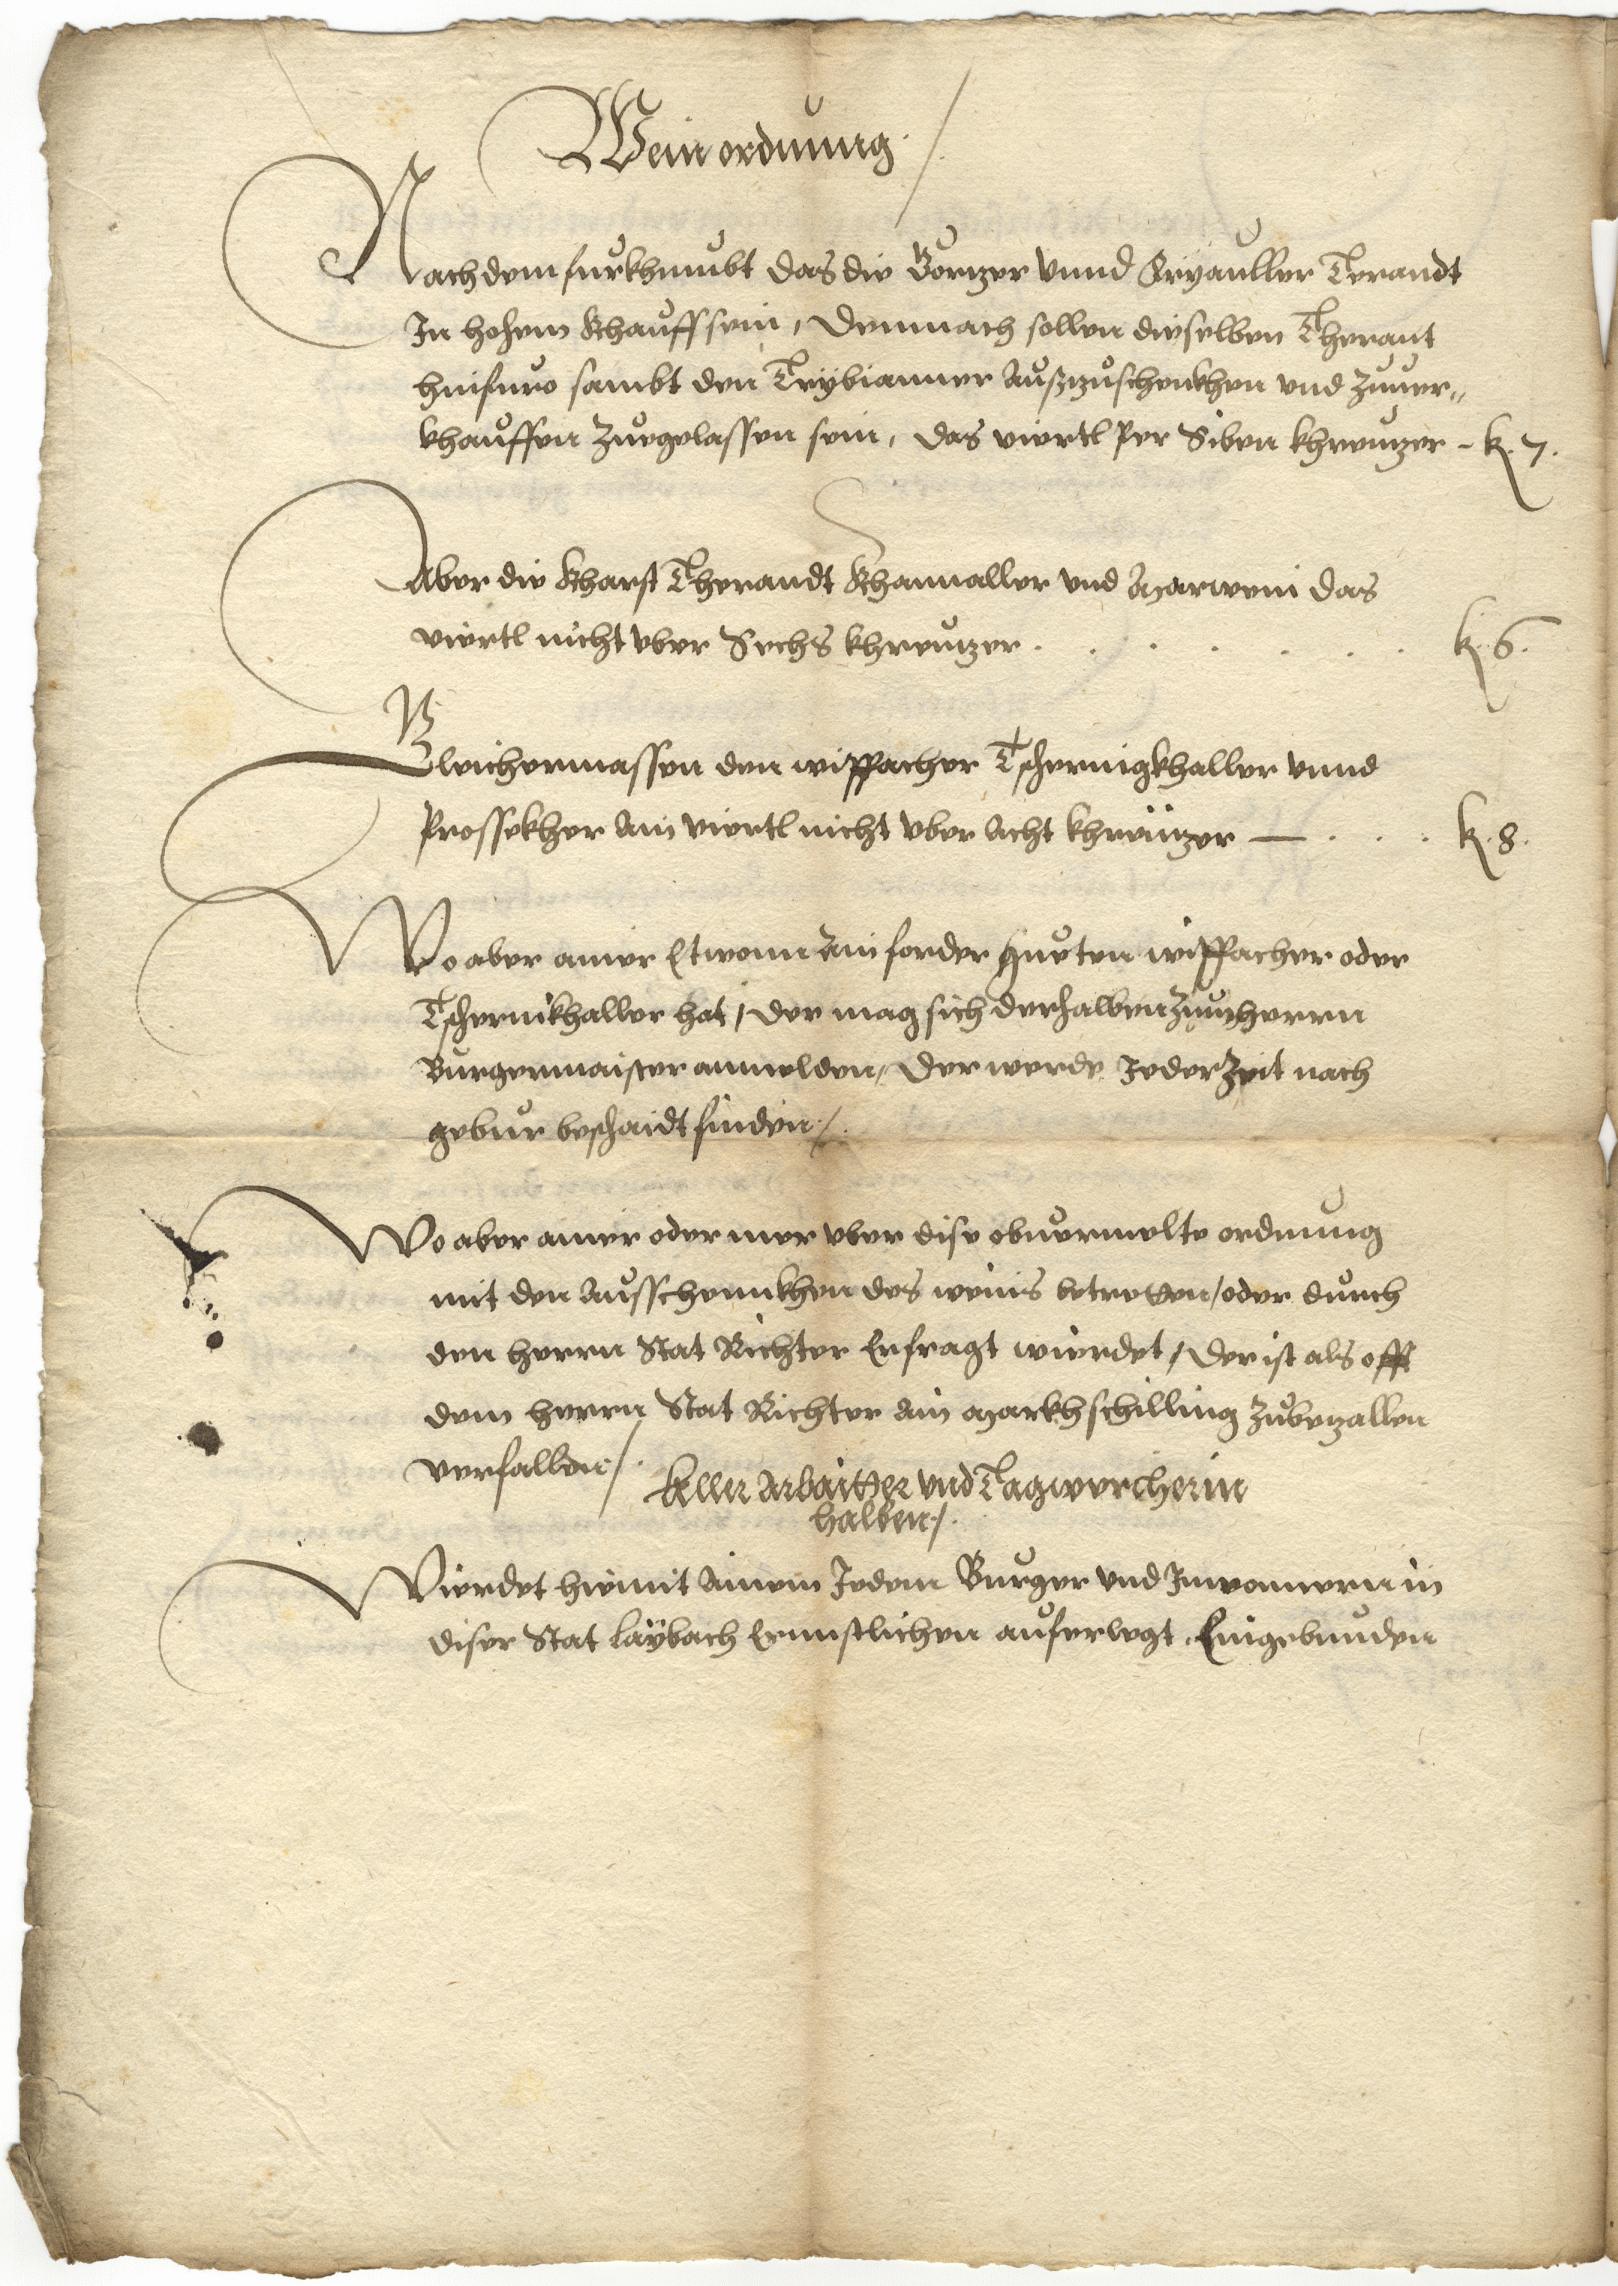 Wein ordnung /
Nachdem furkhumbt das die Gorizer vnnd Criauller Terandt
In hohem Khauff sein, Demnach sollen dieselben Therant
hinfuro sambt den Trybianner Außzuschenkhen vnd Zuuer„
khauffen Zuegelassen sein, das viertl Per Siben khreuzer - k. 7.
Aber die Kharst Therandt Khannaller vnd Marwein das
viertl nicht vber Sechs khreuzer . . . . . . . k. 6.
Gleichermassen den wippacher Tschernigkhaller vnnd
Prossekher Ain viertl nicht vber Acht khreuzer — . . . k. 8.
Wo aber ainer Etwonn Ain forder gueten wippacher oder
Tschernikhaller hat, der mag sich derhalben Zum herrn
Burgermaister anmelden, Der werde Jeder Zeit nach
gebur beschaidt finden /.
Wo aber ainer oder mer vber dise obuermelte ordnung
mit den Ausschennkhen des weins betretten / oder durch
den herrn Stat Richter Erfragt wierdet, Der ist als offt
dem herrn Stat Richter Ain Markhschilling Zubezallen
verfallen /.
Aller Arbaitter vnd Tagwercherin
halben /.
Wierdet hiemit Ainem Jeden Burger vnd Inwonnern in
diser Stat Laÿbach Ernnstlichen auferlegt, Eingebunden